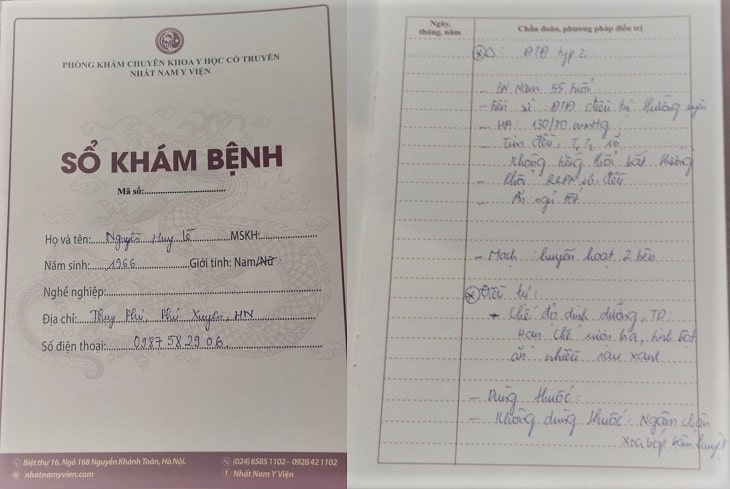 PHÒNG KHÁM CHUYÊN KHOA Y HỌC CỔ TRUYỀN
NHẤT NAM Y VIỆN
SỔ KHÁM BỆNH
Mã số:
Họ và tên: Nguyễn Huy Lễ MSKH:
Năm sinh: 1966 Giới tính: Nam/Nữ
Nghề nghiệp:
Địa chỉ: Thụy Phú, Phú Xuyên, HN
Số điện thoại: 0987 58 29 06
Biệt thự 16, Ngõ 168 Nguyễn Khánh Toàn, Hà Nội.
nhatnamyvien.com
(024) 8585 1102 - 0928 42 1102
Nhất Nam Y Viện
Ngày, tháng, năm
Chẩn đoán, phương pháp điều trị
ĐTĐ typ 2
- BN Nam 55 tuổi
- Tiền sử ĐTĐ điều trị thường xuyên
- HA: 130/70 mmHg
- Tim đều: T1, T2 rõ
Không tiếng thổi bất thường
- Phổi RRPN rõ, đều
- Ăn ngủ tốt
- Mạch: huyền hoạt 2 bên
Điều trị:
+ Chế độ dinh dưỡng, TD
Hạn chế rượu bia, tinh bột
ăn nhiều rau xanh
- Dùng thuốc:
- Không dùng thuốc: Ngâm chân
xoa bóp bấm huyệt